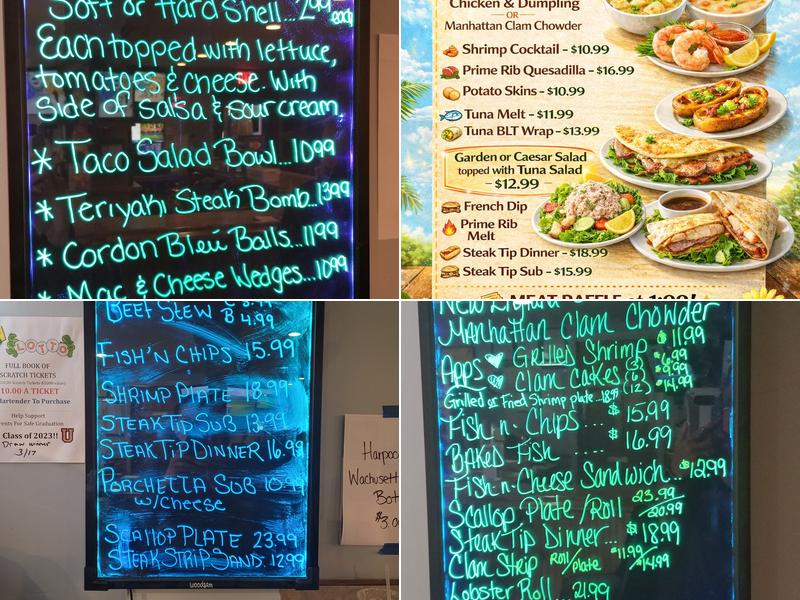 Soft or Hard Shell...2.99 each
Each topped with lettuce,
tomatoes & cheese. With
side of salsa & sour cream
* Taco Salad Bowl...10.99
* Teriyaki Steak Bomb...13.99
* Cordon Bleu Balls...11.99
* Mac & Cheese Wedges...10.99
Chicken & Dumpling
OR
Manhattan Clam Chowder
Shrimp Cocktail - $10.99
Prime Rib Quesadilla - $16.99
Potato Skins - $10.99
Tuna Melt - $11.99
Tuna BLT Wrap - $13.99
Garden or Caesar Salad
topped with Tuna Salad
- $12.99 -
French Dip
Prime Rib
Melt
Steak Tip Dinner - $18.99
Steak Tip Sub - $15.99
MEAT RAFFLE at 1:00!
LOTTO
FULL BOOK OF
SCRATCH TICKETS
10.00 A TICKET
Bartender To Purchase
Help Support
Events For Safe Graduation
Class of 2023!!
Draw winner
3/17
BEEF STEW
B 4.99
FISH'N CHIPS 15.99
SHRIMP PLATE 18.99
STEAK TIP SUB 13.99
STEAK TIP DINNER 16.99
PORCHETTA SUB 10.99
w/CHEESE
SCALLOP PLATE 23.99
STEAK STRIP SAND. 12.99
woodsam
Harpoo
Wachusett
Bot
$3.0
New England
Manhattan Clam Chowder
Apps Grilled Shrimp $11.99
Clam Cakes (3) $6.99
(6) $9.99
(12) $14.99
Grilled or Fried Shrimp plate...18.99
Fish n. Chips.... $15.99
Baked Fish .... $16.99
Fish n. Cheese Sandwich...$12.99
Scallop Plate /Roll 23.99/20.99
Steak Tip Dinner... $18.99
Clam Strip Roll/Plate $11.99/$14.99
Lobster Roll...21.99